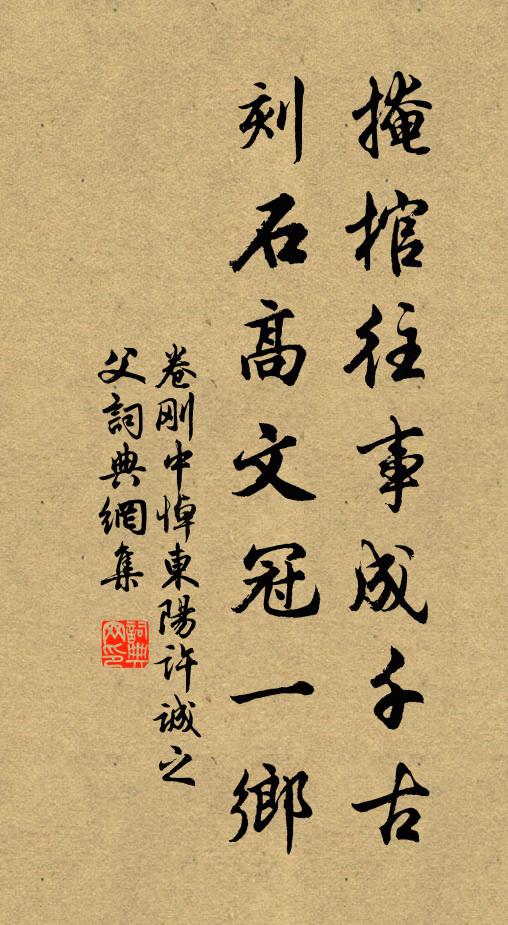 掩棺往事成千古
刻石高文冠一鄉
卷剛中悼東陽許誠之
父詞典網集
詞典
網印